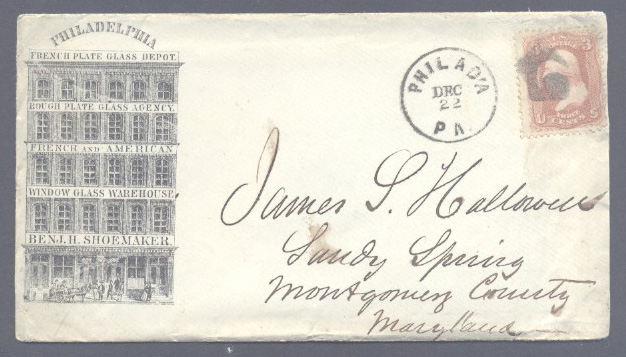 PHILADELPHIA
FRENCH PLATE GLASS DEPOT.
ROUGH PLATE GLASS AGENCY.
FRENCH AND AMERICAN
WINDOW GLASS WAREHOUSE
BENJ. H. SHOEMAKER.
PHILAD'A
DEC
22
PA.
3 3
CENTS
James S. Hallowell
Sandy Spring
Montgomery County
Maryland